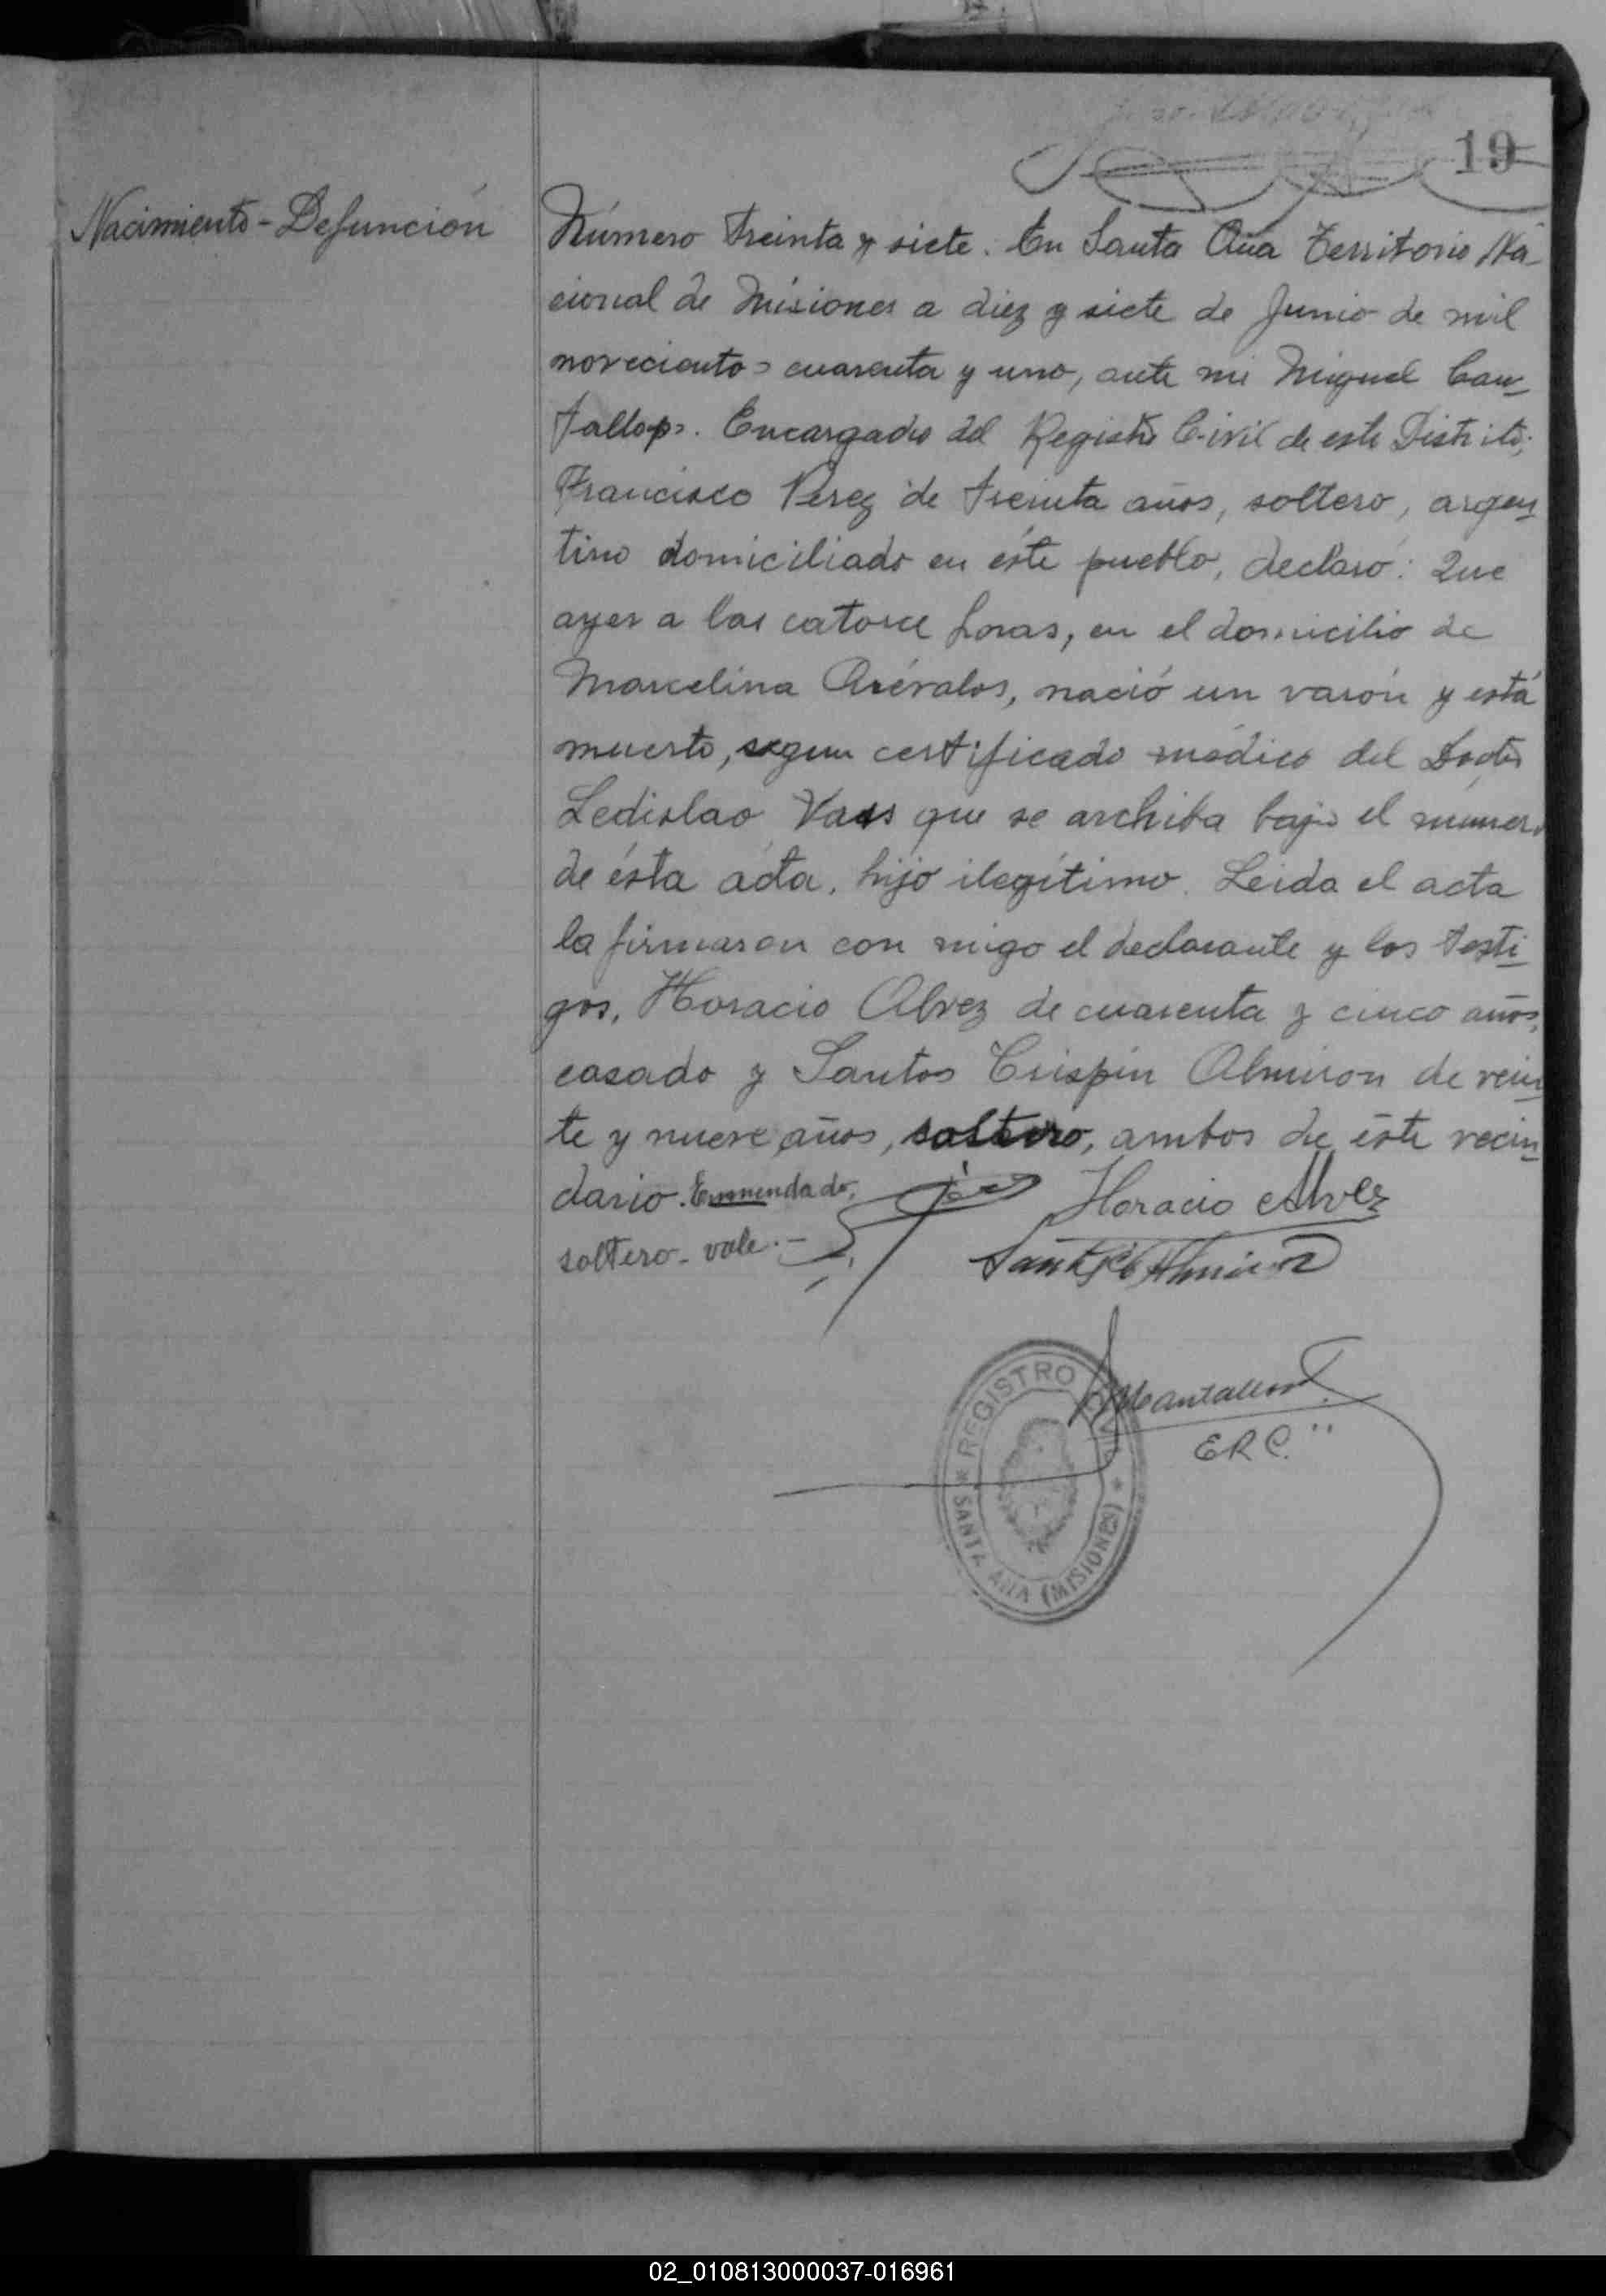 19
Nacimiento - Defunción
Número treinta y siete. En Santa Ana Territorio Na-
cional de Misiones a diez y siete de Junio de mil
novecientos cuarenta y uno, ante mi Miguel Can-
tallops. Encargado del Registro Civil de este Distrito;
Francisco Perez de treinta años, soltero, argen-
tino domiciliado en éste pueblo, declaró: Que
ayer a las catorce horas, en el domicilio de
Marcelina Arévalos, nació un varón y está
muerto, segun certificado médico del Doctor
Ledislao Vass que se archiba bajo el número
de ésta acta, hijo ilegítimo. Leida el acta
la firmaron con migo el declarante y los testi-
gos, Horacio Alvez de cuarenta y cinco años,
casado y Santos Crispin Almiron de vein-
te y nueve años, soltero, ambos de éste vecin-
dario. Enmendado,
soltero - vale. -
Horacio Alvez
Almiron
MCantallops
E.R.C.
REGISTRO CIVIL
* SANTA ANA (MISIONES) *
02_010813000037-016961